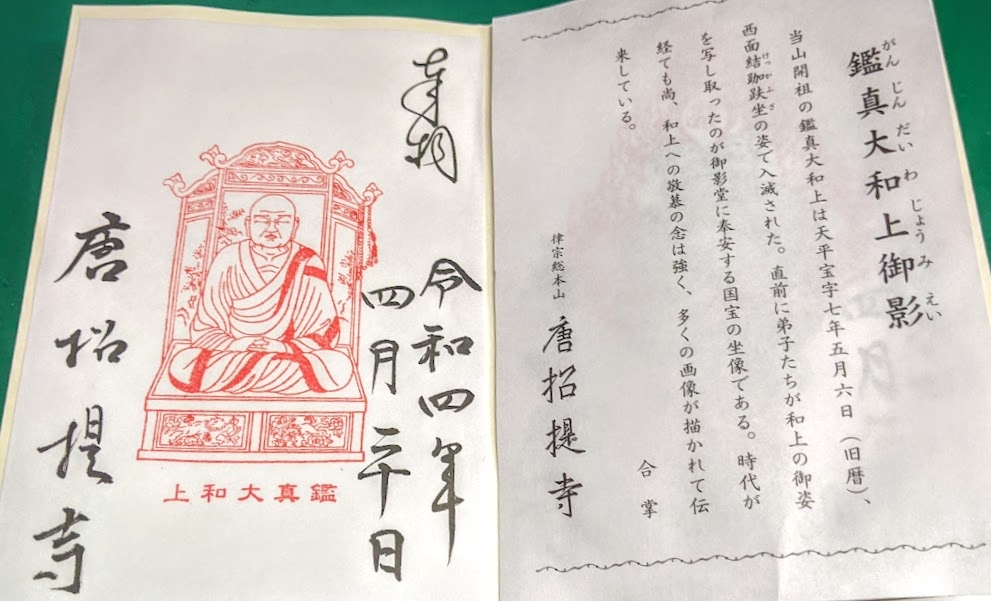 鑑真大和上御影
がんじんだいわじょうみえい
当山開祖の鑑真大和上は天平宝字七年五月六日（旧暦）、
西面結跏趺坐の姿で入滅された。直前に弟子たちが和上の御姿
けっかふざ
を写し取ったのが御影堂に奉安する国宝の坐像である。時代が
経ても尚、和上への敬慕の念は強く、多くの画像が描かれて伝
来している。
合掌
律宗総本山 唐招提寺
奉拝
令和四年
四月二十日
鑑真大和上
唐招提寺